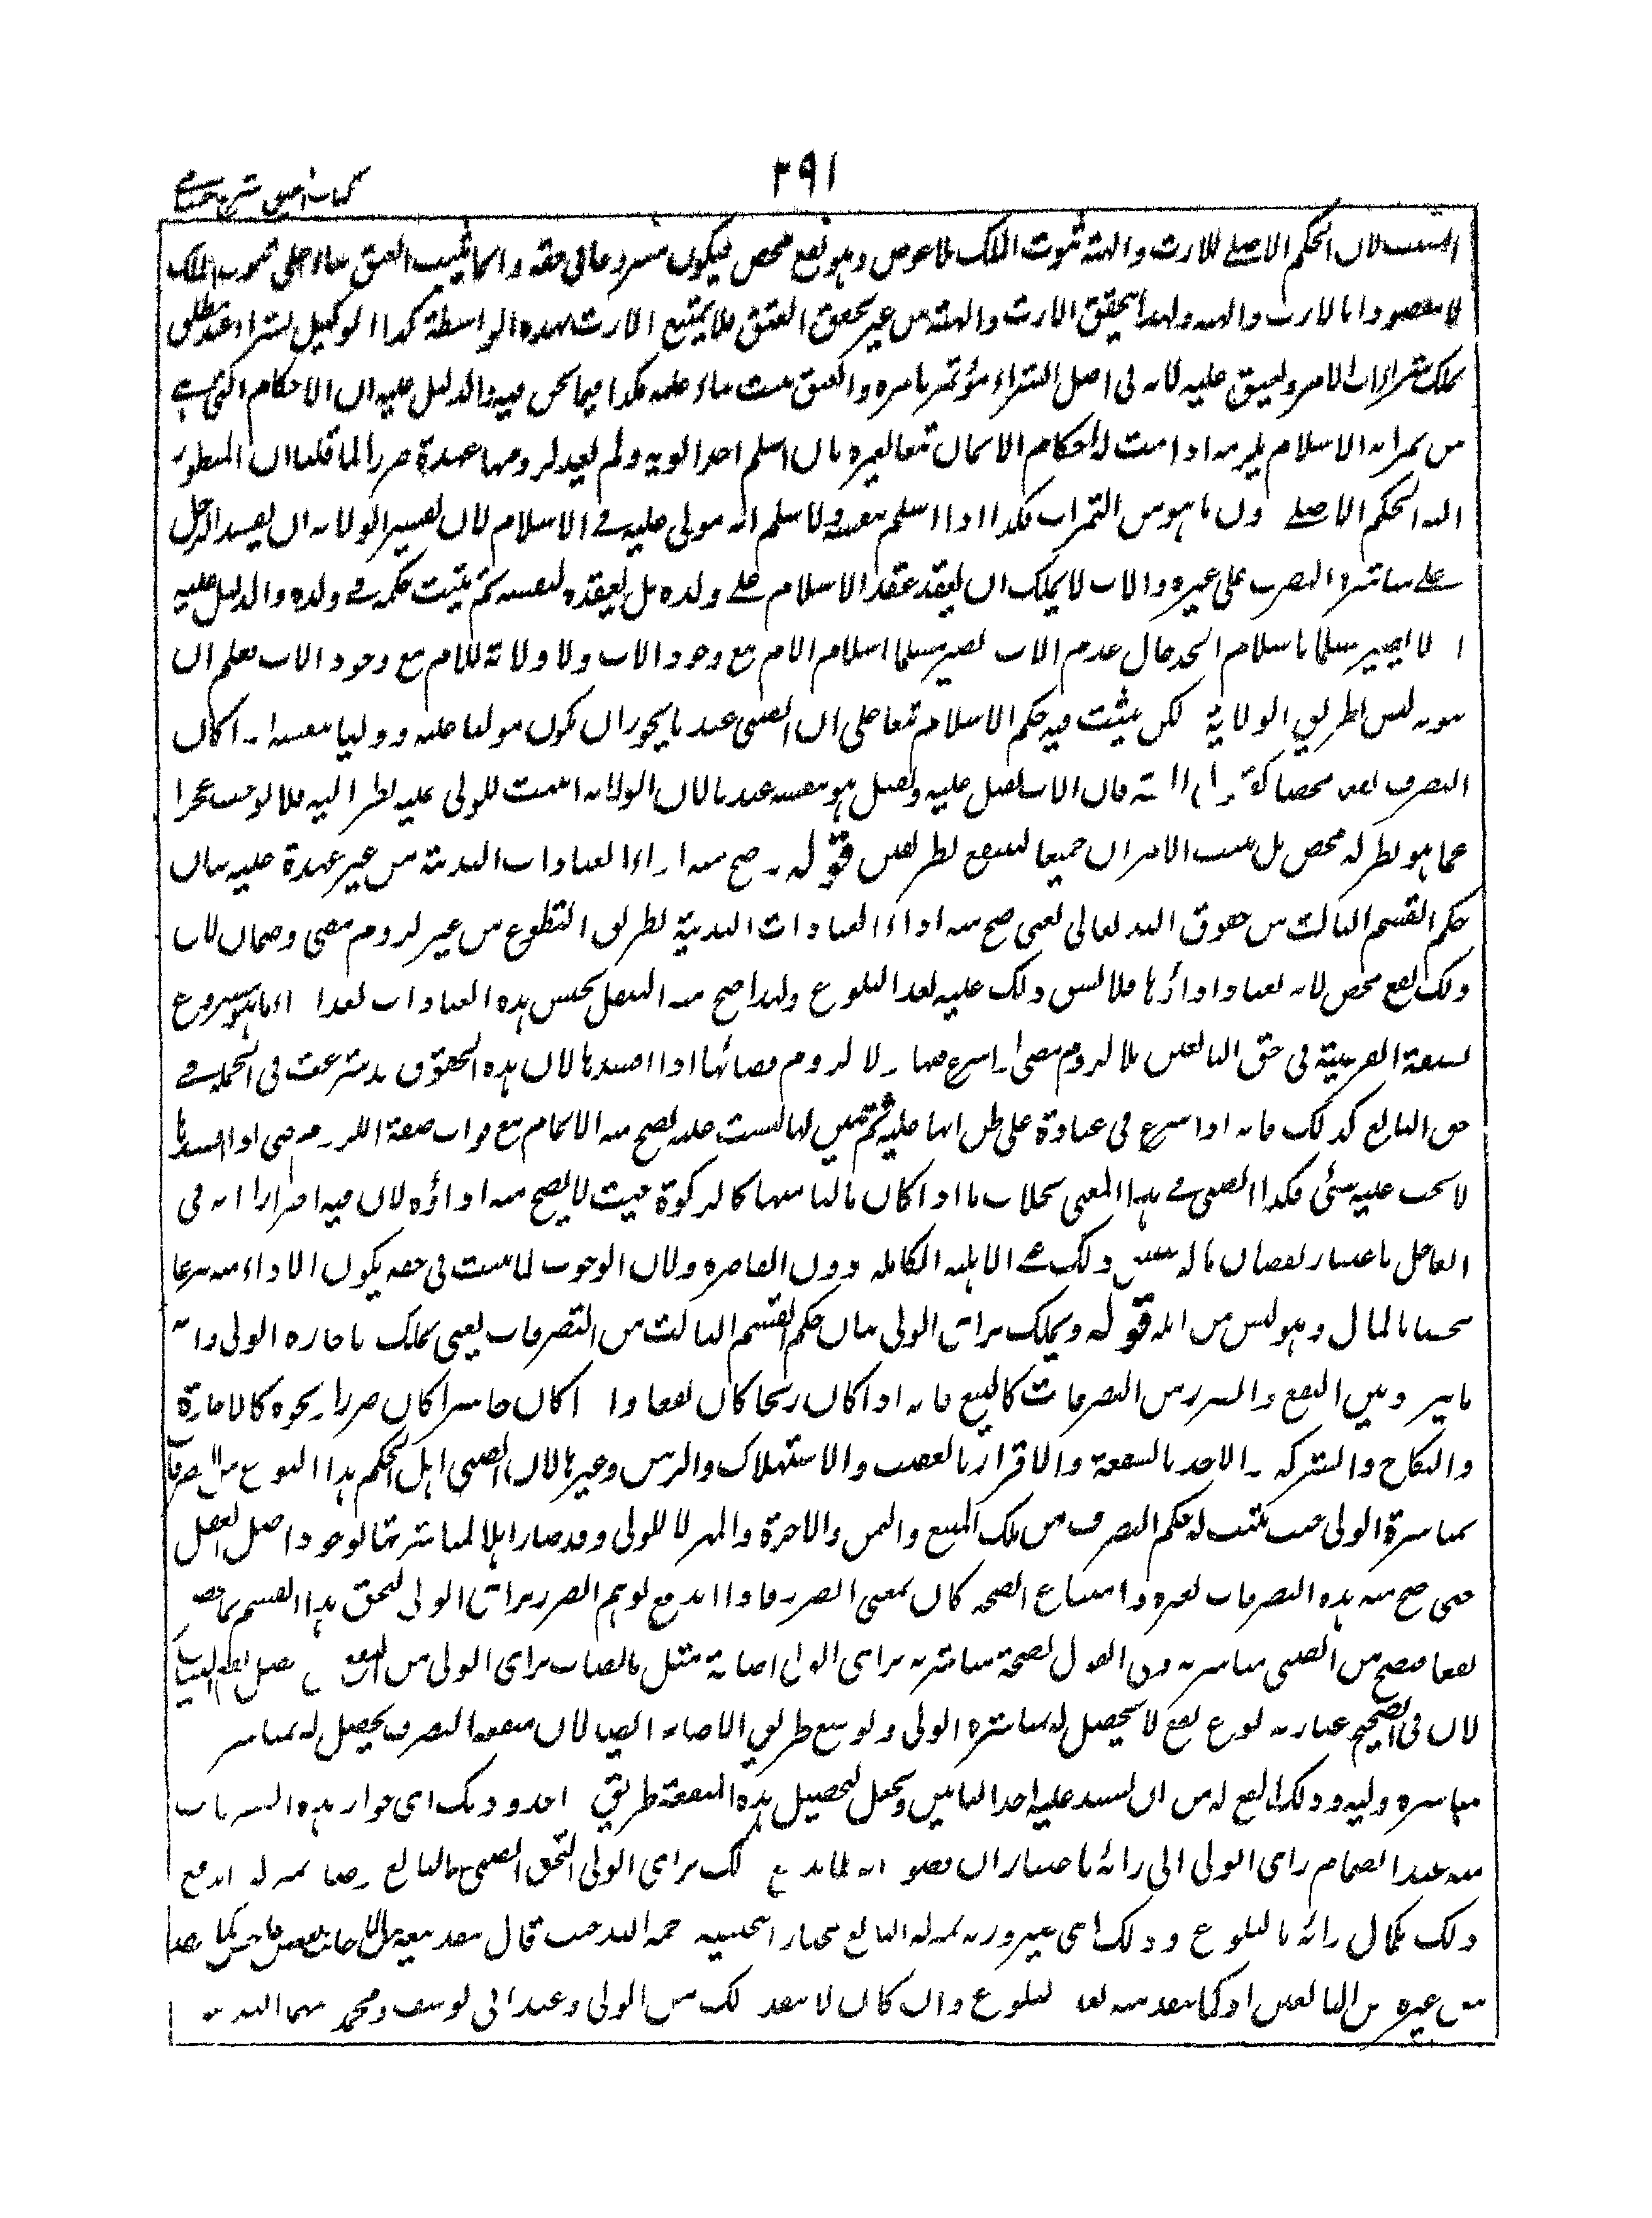 ٢٩١
السبب لان الحكم الاصلے للارث والهبة ثبوت الملك بلا عوض وهو نفع محض فيكون مشروعا فى حقه وانما يثبت العتق بناء على ثبوت الملك
لا مقصودا بالارث والهبة ولهذا يتحقق الارث والهبة من غير تحقق العتق فلا يمتنع الارث بهذه الواسطة كذا الوكيل بشراء عبد مطلق
يملك شراء اب الامر ويعتق عليه لانه فى اصل الشراء مؤتمر بامره والعتق يثبت بناء عليه فكذا فيما نحن فيه والدليل عليه ان الاحكام التى هے
من ثمرات الاسلام يلزمه اذا ثبت له احكام الايمان تبعا لغيره بان اسلم احد ابويه ولم يعد لزومها عهدة وضررا لما قلنا ان المنظور
اليه الحكم الاصلے دون ما هو من الثمرات فكذا اذا اسلم بنفسه ولا نسلم انه مولى عليه فے الاسلام لان تفسير الولاية ان يفسد الرجل
علے مباشرة التصرف على غيره والاب لا يملك ان يعقد عقد الاسلام علے ولده بل يعقده لنفسه ثم يثبت حكمه فے ولده والدليل عليه
لا يصير مسلما باسلام الجد حال عدم الاب يصير مسلما باسلام الام مع وجود الاب ولا ولاية للام مع وجود الاب فعلم ان
ثبوته ليس بطريق الولاية لكن يثبت فيه حكم الاسلام تبعا على ان الصبى عندنا يجوز ان يكون موليا عليه ووليا بنفسه اذا كان
التصرف نفعا محضا كقبول الهبة فان الاب يقبل عليه ويقبل هو بنفسه عندنا لان الولاية اثبتت للولى عليه نظرا اليه فلا توجب حجرا
عما هو نظر له محض بل يثبت الامران جميعا لينتفع بطريقين قوله وصح منه اداء العبادات البدنية من غير عهدة عليه بيان
حكم القسم الثالث من حقوق الله تعالى يعنى صح منه اداء العبادات البدنية بطريق التطوع من غير لزوم مضى وضمان لان
ذلك نفع محض لانه يعتاد اداؤها فلا يشق ذلك عليه بعد البلوغ ولهذا صح منه التنفل بجنس هذه العبادات بعد اداء ما هو مشروع
بصفة الفرضية فى حق البالغين بلا لزوم مضى اذا شرع فيها ولا لزوم قضائها اذا افسدها لان هذه الحقوق قد شرعت فى الجملة فے
حق البالغ كذلك فانه اذا شرع فى عبادة على ظن انها عليه ثم تبين انها ليست عليه يصح منه الاتمام مع فوات صفة اللزوم حتى اذا افسدها
لا يجب عليه شئى فكذا الصبى فے هذا المعنى بخلاف ما اذا كان ماليا منها كالزكوة حيث لا يصح منه اداؤه لان فيه اضرارا به فى
العاجل باعتبار نقصان ماله فيبتنى ذلك علے الاهلية الكاملة دون القاصرة ولان الوجوب لما يثبت فى حقه يكون الاداء منه تبرعا
محضا بالمال وهو ليس من اهله قوله ويملك براى الولى بيان حكم القسم الثالث من التصرفات يعنى يملك باجازة الولى واذنه
ما يتردد بين النفع والضرر من التصرفات كالبيع فانه اذا كان ربحا كان نفعا واذا كان خاسرا كان ضررا ونحوه كالاجارة
والنكاح والشركة والاخذ بالشفعة والاقرار بالغصب والاستهلاك والرهن وغيرها لان الصبى اهل لحكم هذا النوع من التصرفات
بمباشرة الولى حيث يثبت له حكم التصرف من ملك المبيع والثمن والاجرة والمهر لا للولى وقد صار اهلا لمباشرتها لوجود اصل العقل
حتى صح منه هذه التصرفات لغيره وامتناع الصحة كان لمعنى الضرر فاذا اندفع توهم الضرر براى الولى التحق هذا القسم بما يتمحض
نفعا فيصح من الصبى مباشرته وفى القول بصحة مباشرته براى الولى اصابة مثل ما يصاب براى الولى من النفع مع فضل نفع البيان
لان فى تصحيح عبارته نوع نفع لا يحصل له بمباشرة الولى وتوسيع طريق الاصابة ايضا لان منفعة التصرف يحصل له بمباشرته
مباشرة وليه وذلك انفع له من ان يسد عليه احد البابين ويجعل لتحصيل هذه المنفعة طريق واحد وذلك اى جواز هذه التصرفات
منه عند انضمام راى الولى الى رايه باعتبار ان قصور رايه لما اندفع ذلك براى الولى التحق الصبى بالبالغ وصار بمنزلة ما اذا اندفع
ذلك بكمال رايه بالبلوغ وذلك اى صيرورته بمنزلة البالغ مختار ابى حنيفة رحمه الله حيث قال ينفذ بيعه من الاجانب بغبن فاحش كما ينفذ
من غيره من البالغين او كما ينفذ منه بعد البلوغ وان كان لا ينفذ ذلك من الولى وعند ابى يوسف ومحمد رحمهما الله